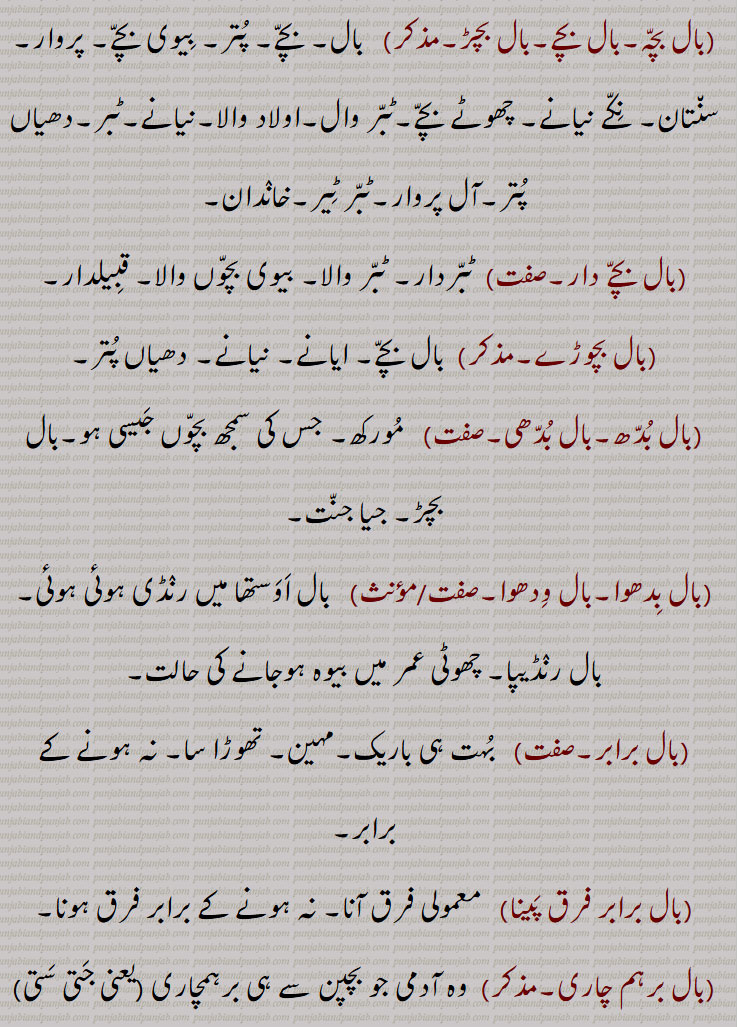 (بال بچّہ۔بال بچے۔بال بچڑ۔مذکر) بال۔ بچّے۔ پُتر۔ بِیوی بچّے۔ پروار۔
سنّتان۔ نِکّے نیانے۔ چھوٹے بچّے۔ٹبّر وال۔اولاد والا۔نیانے۔ٹبر۔دھیاں
پُتر۔آل پروار۔ٹبّر ٹِیر۔خانٛدان۔
(بال بچّے دار۔صفت) ٹبّردار۔ ٹبّر والا۔ بیوی بچّوں والا۔ قبِیلدار۔
(بال بچوڑے۔مذکر) بال بچّے۔ ایانے۔ نیانے۔ دھیاں پُتر۔
(بال بُدّھ۔بال بُدّھی۔صفت) مُورکھ۔ جس کی سمجھ بچّوں جَیسی ہو۔بال
بچڑ۔ جیا جنّت۔
(بال بِدھوا۔بال وِدھوا۔صفت/مؤنث) بال اَوَستھا میں رنٛڈی ہوئی ہوئی۔
بال رنٛڈیپا۔ چھوٹی عمر میں بیوہ ہوجانے کی حالت۔
(بال برابر۔صفت) بہُت ہی باریک۔مہین۔ تھوڑا سا۔ نہ ہونے کے
برابر۔
(بال برابر فرق پَینا) معمولی فرق آنا۔ نہ ہونے کے برابر فرق ہونا۔
(بال برہم چاری۔مذکر) وہ آدمی جو بچپن سے ہی برہمچاری (یعنی جَتی سَتی)